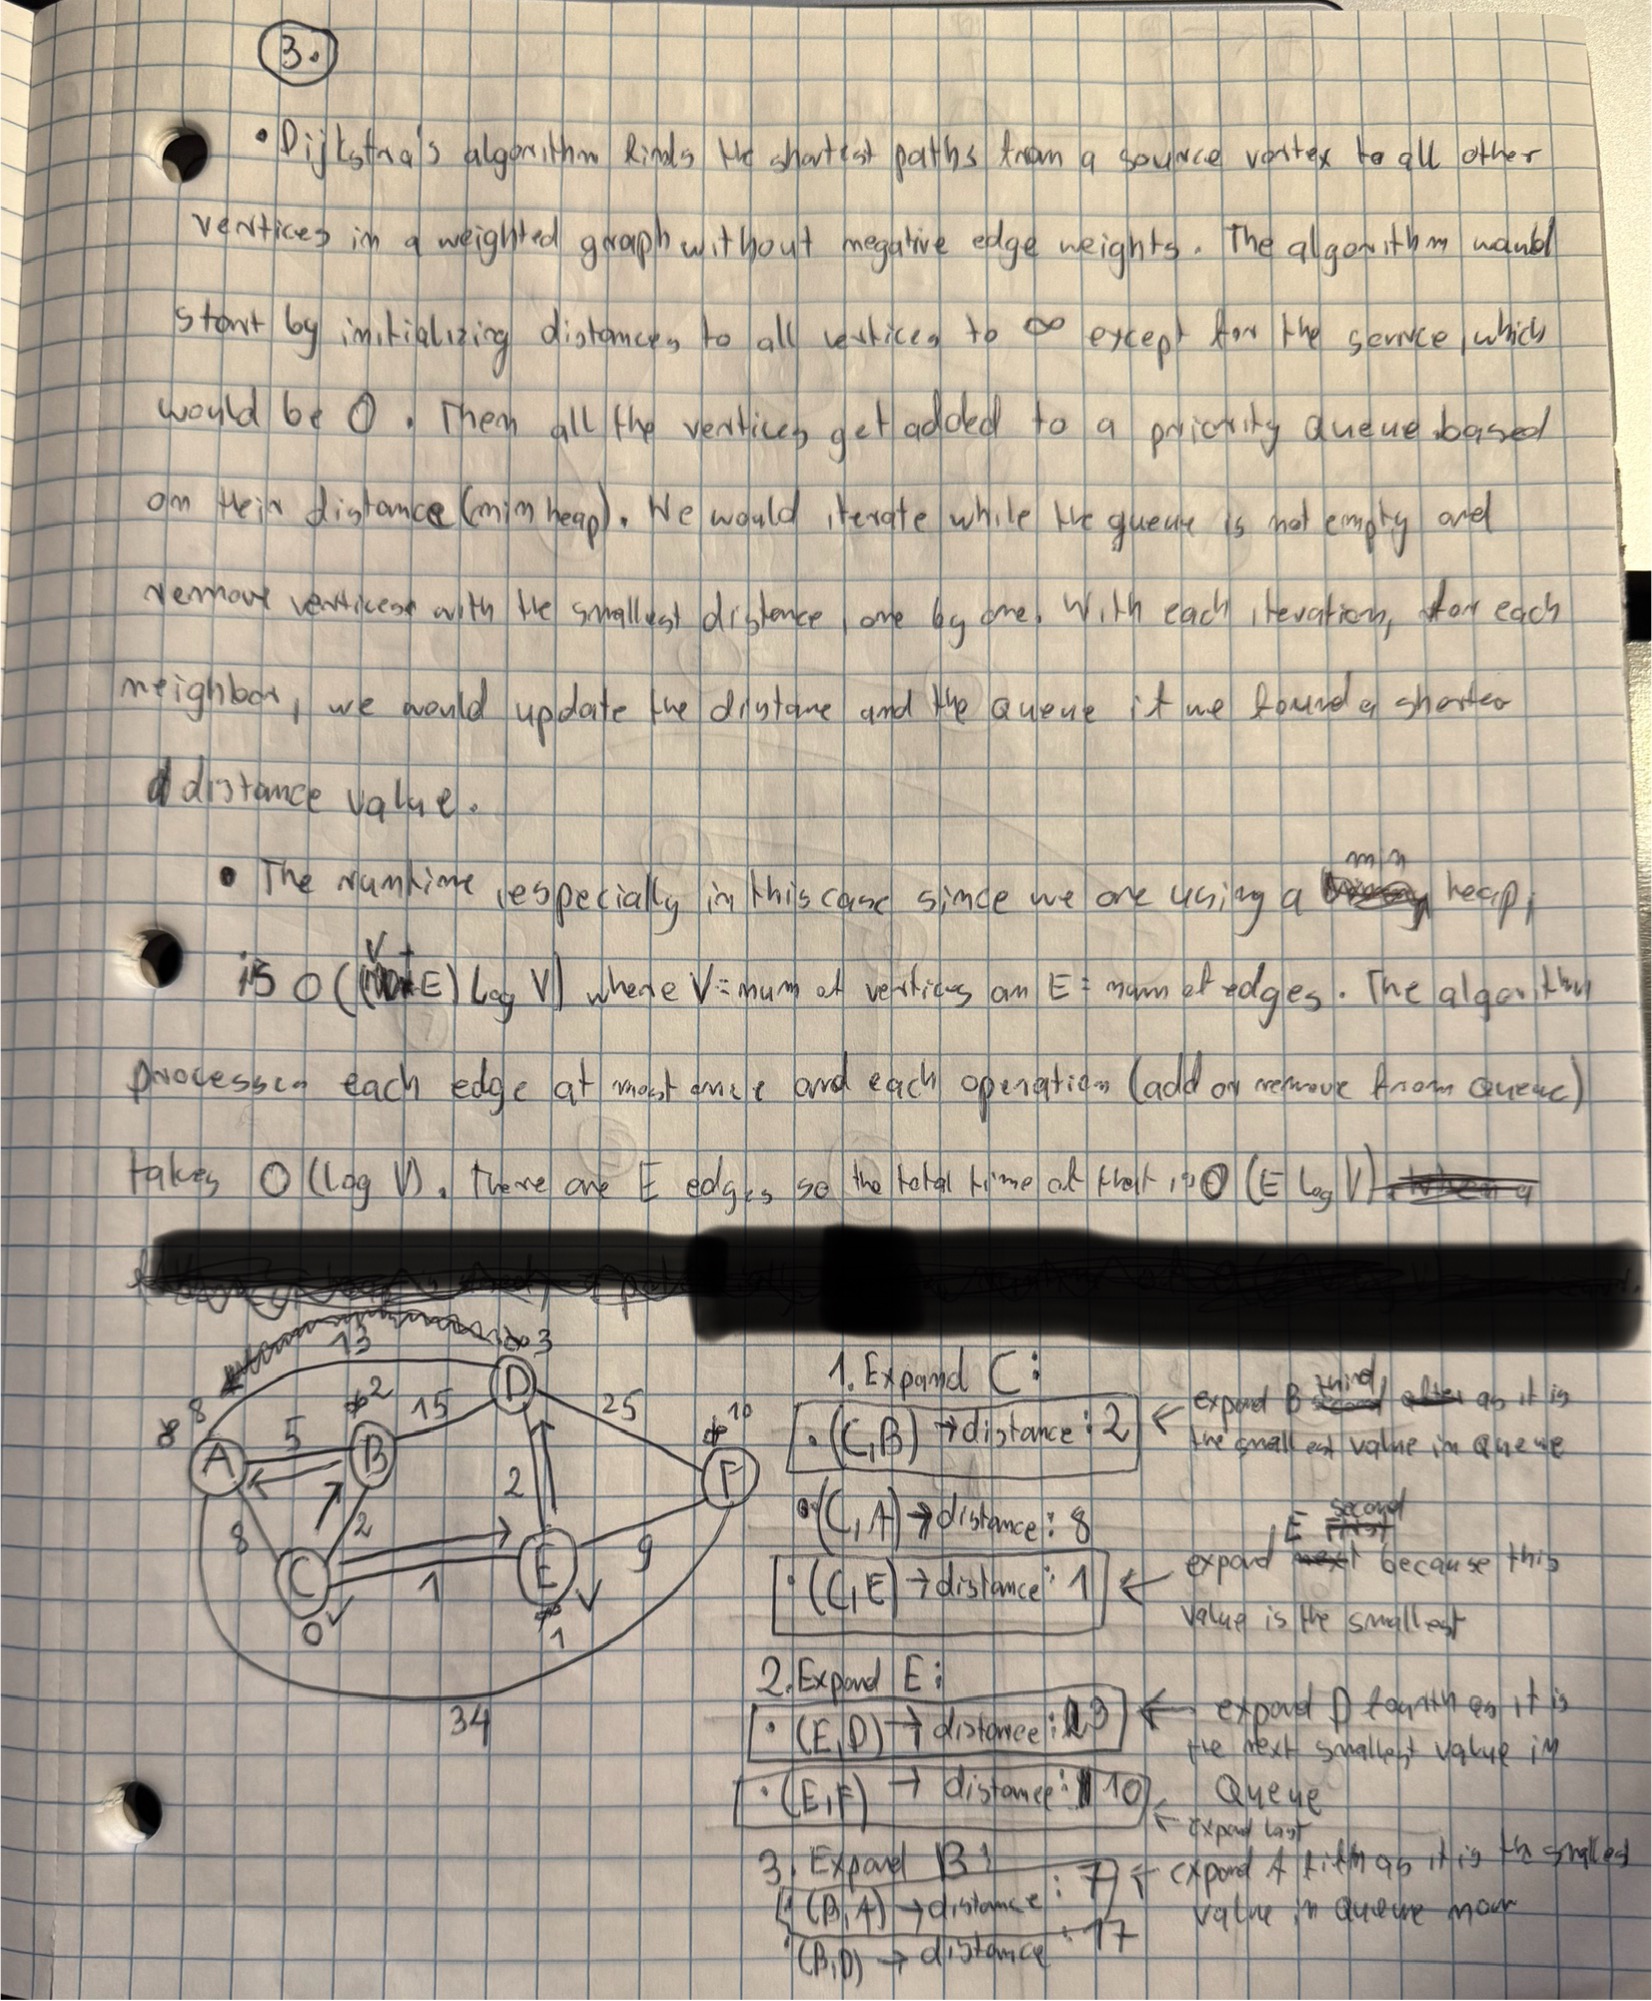 3.
• Dijkstra's algorithm finds the shortest paths from a source vertex to all other
vertices in a weighted graph without negative edge weights. The algorithm would
start by initializing distances to all vertices to ∞ except for the source, which
would be 0. Then all the vertices get added to a priority queue based
on their distance (min heap). We would iterate while the queue is not empty and
remove vertices with the smallest distance, one by one. With each iteration, for each
neighbor, we would update the distane and the queue if we found a shorter
distance value.
• The runtime, especially in this case since we are using a min heap,
is O((V+E) log V) where V = num of vertices an E = num of edges. The algorithm
processes each edge at most once and each operation (add or remove from queue)
takes O(log V). There are E edges so the total time of that is O(E log V).
13
∞ 3
8
∞
∞ 2
15
D
25
∞ 10
5
A
B
F
2
8
2
9
C
E
1
0
∞
1
34
1. Expand C:
• (C,B) → distance: 2 ← expand B third as it is
the smallest value in queue
• (C,A) → distance: 8
• (C,E) → distance: 1 ← expand E second because this
value is the smallest
2. Expand E:
• (E,D) → distance: 3 ← expand D fourth as it is
the next smallest value in
Queue
• (E,F) → distance: 10 ← expand last
3. Expand B:
(B,A) → distance: 7 ← expand A fifth as it is the smallest
value in Queue now
(B,D) → distance: 17